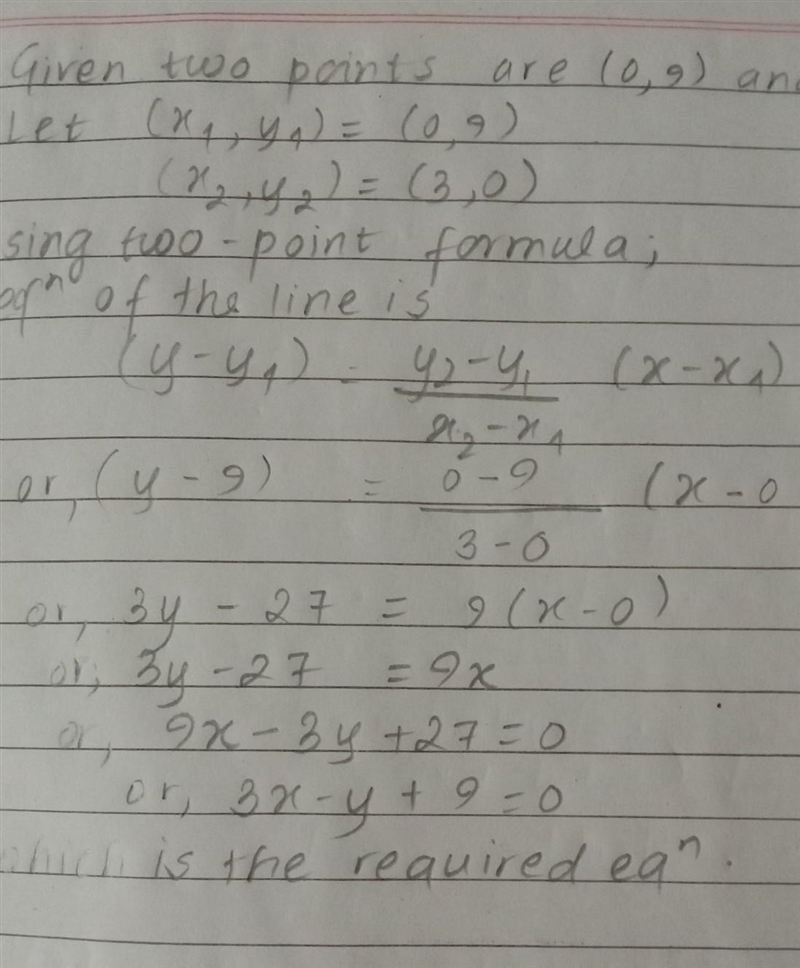 Given two points are (0,9) and
Let (x1, y1) = (0,9)
(x2, y2) = (3,0)
sing two-point formula;
eqn of the line is
(y-y1) = y2-y1 / x2-x1 (x-x1)
or, (y-9) = 0-9 / 3-0 (x-0
or, 3y - 27 = 9(x-0)
or, 3y-27 = 9x
or, 9x-3y+27=0
or, 3x-y+9=0
which is the required eqn.